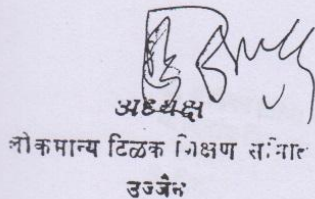 अध्यक्ष
लोकमान्य टिळक शिक्षण समिति
उज्जैन